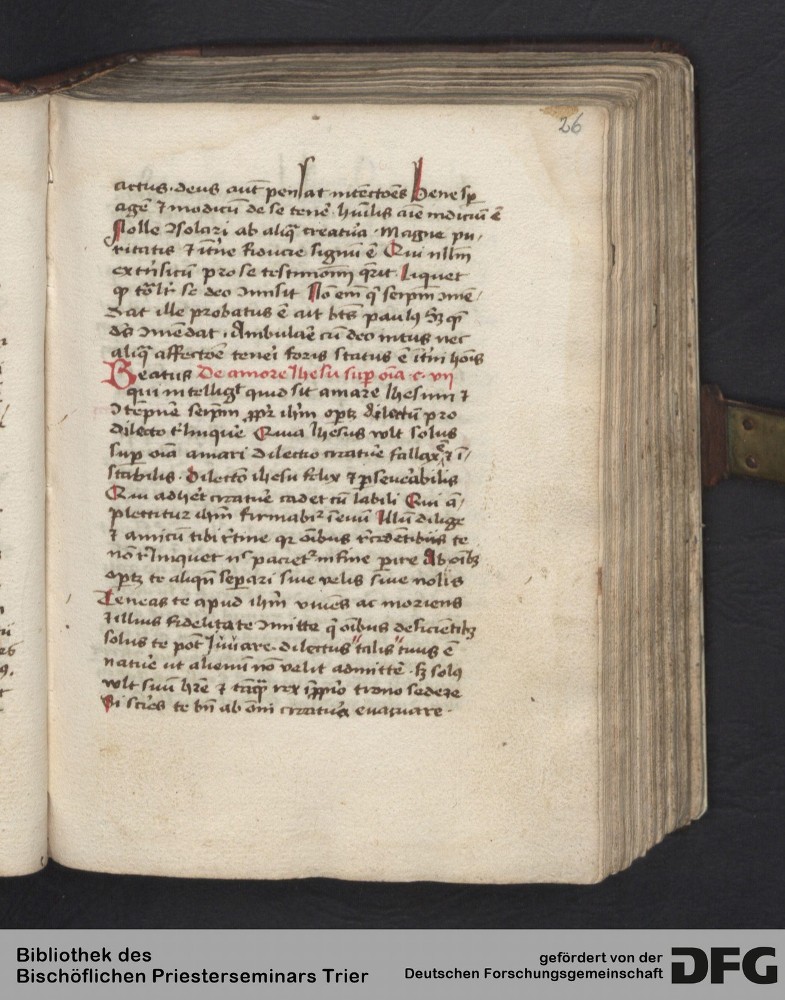 26
actus · deus aut pensat intectoēs Bene sp
agē & modicū de se tenē huīlis aīe indiciū ē
Nolle ↄsolari ab aliq̄ creatura · Magne pu-
ritatis & ītne fiducie signū ē Qui nllm
extrīsicū pro se testimoniū q̄rit · liquet
ꝙ totalr̄ se deo ↄmisit No em̄ q̄ seipm̄ ↄmē-
dat ille probatus ē ait bts paulꝰ Sꝫ quē
ds ↄmēdat · Ambulare cū deo intus nec
aliq̄ affectoē teneī foris status ē ītni hoīs
Beatus De amore Ihesu sup oīa · c · vij
qui intelligit quid sit amare Ihesum &
ↄtēpnē seipm̄ ꝓpt ihm̄ optꝫ dilectū pro
dilecto relinquē Quia Ihesus vult solus
sup oīa amari Dilectio creature fallax ē & ī-
stabilis · Dilectō ihesu felix & ꝑseuerabilis
Qui adheret creature cadet cū labili Qui ā-
plectitur ihm̄ firmabit' ī euū Illū dilige
& amicū tibi retine qui oībus recedentibus te
nō relinquet nec paciet' in fine perire Ab oībꝫ
optꝫ te aliqn̄ separari siue velis siue nolis
Teneas te apud ihm̄ viuēs ac moriens
& illius fidelitate ↄmitte q̄ oībus deficientibꝫ
solus te pot Juuare · dilectus talis tuus ē
nature ut alienū nō velit admittē · sꝫ solꝰ
vult suū hr̄e & tāqꝫ rex ī ꝓprio trono sedere
Si scires te bn̄ ab omī creatura euacuare ·
Bibliothek des
Bischöflichen Priesterseminars Trier
gefördert von der
Deutschen Forschungsgemeinschaft
DFG